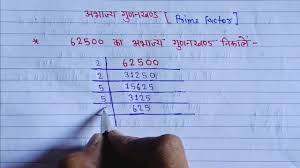 अभाज्य गुणनखण्ड [ Prime Factor ]
* 62500 का अभाज्य गुणनखण्ड निकालें-
2 62500
2 31250
5 15625
5 3125
625